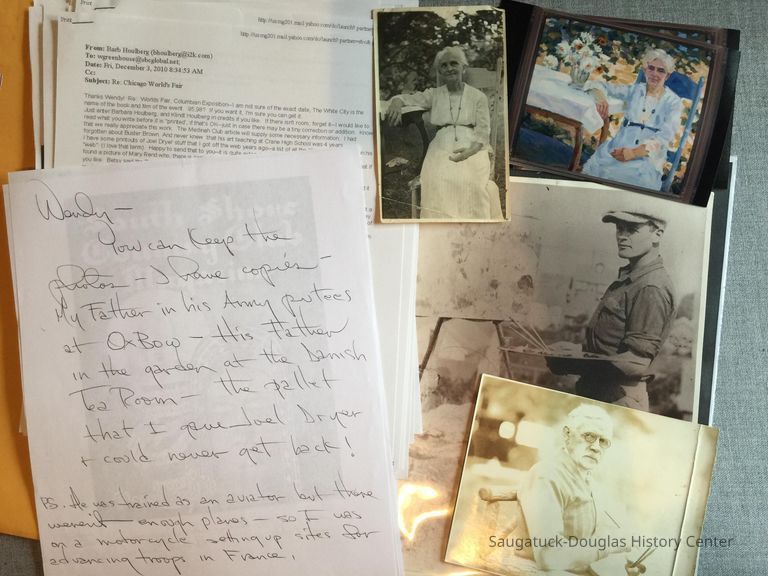 Print
Print
http://us.mg201.mail.yahoo.com/dc/launch?.partner
http://us.mg201.mail.yahoo.com/dc/launch?.partner=sbc&
From: Barb Houlberg (bhoulberg@i2k.com)
To: wgreenhouse@sbcglobal.net;
Date: Fri, December 3, 2010 8:34:53 AM
Cc:
Subject: Re: Chicago World's Fair
Thanks Wendy! Re: World's Fair, Columbian Exposition--I am not sure of the exact date, The White City is the
name of the book and film of the event. If you want it, I'm sure you can get it.
Just enter Barbara Houlberg, and Klindt Houlberg in credits if you like. If there isn't room, forget it--I would like to
read what you write before it is "printed", if that's OK--just in case there may be a tiny correction or addition. Know
that we really appreciate this work. The Medinah Club article will supply some necessary information. I had
forgotten about Buster Brown. And never knew that his art teaching at Crane High School was 4 years
I have some printouts of Joel Dryer stuff that I got off the web years ago--a list of all
"web" (I love that term). Happy to send that to you--it is quite
found a picture of Mary Reid who, there is
you like. Betsy says
Wendy—
You can keep the
photos — I have copies —
My Father in his Army putees
at OxBow — His Father
in the garden at the Danish
Tea Room — the pallet
that I gave Joel Dryer
+ could never get back!
PS. He was trained as an aviator but there
weren't enough planes — so F was
on a motorcycle setting up sites for
advancing troops in France.
Saugatuck-Douglas History Center